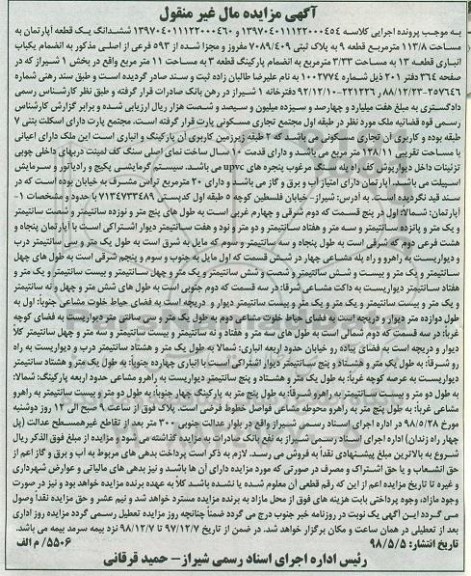 آگهی مزایده مال غیر منقول
به موجب پرونده اجرایی کلاسه ۱۳۹۷۰۴۰۱۱۱۲۲۰۰۰۴۵۴ و ۱۳۹۷۰۴۰۱۱۱۲۲۰۰۰۴۶۰ ششدانگ یک قطعه آپارتمان به
مساحت ۱۱۳/۸ مترمربع قطعه ۹ به پلاک ثبتی ۷۰۸۹/۴۰۹ مفروز و مجزا شده از ۵۹۳ فرعی از اصلی مذکور به انضمام یکباب
انباری قطعه ۱۳ به مساحت ۳/۳۳ مترمربع به انضمام پارکینگ قطعه ۳ به مساحت ۱۱ متر مربع واقع در بخش ۱ شیراز که در
صفحه ۳۶۴ دفتر ۲۰۱ ذیل شماره ۱۰۰۲۷۷۴ به نام علیرضا طالبان زاده ثبت و سند صادر گردیده است و طبق سند رهنی شماره
۲۵۷۶۴۶-۸۸/۱۲/۲۳ و ۲۲۱۲۲۶-۹۲/۱۰/۱۰ دفترخانه ۱ شیراز در رهن بانک صادرات قرار گرفته و طبق نظر کارشناس رسمی
دادگستری به مبلغ هفت میلیارد و چهارصد و سیزده میلیون و سیصد و شصت هزار ریال ارزیابی شده و برابر گزارش کارشناس
رسمی قوه قضائیه ملک مورد نظر در طبقه اول مجتمع تجاری مسکونی پارت قرار گرفته است. مجتمع پارت دارای اسکلت بتنی ۷
طبقه بوده و کاربری آن تجاری مسکونی می باشد که ۲ طبقه زیرزمین کاربری آن پارکینگ و انباری است این ملک دارای اعیانی
با مساحت تقریبی ۱۲۸/۱۱ متر مربع می باشد و دارای قدمت ۱۰ سال ساخت نمای اصلی سنگ کف لمینت دربهای داخلی چوبی
تزئینات داخل دیوارپوش کف راه پله سنگ مرغوب پنجره های upvc می باشد. سیستم گرمایشی پکیج و رادیاتور و سرمایش
اسپیلت می باشد. آپارتمان دارای امتیاز آب و برق و گاز می باشد و دارای ۲۰ مترمربع تراس مشرف به خیابان بوده است که در
سند قید نگردیده است. به آدرس: شیراز- خیابان فلسطین کوچه ۵ طبقه اول کدپستی ۷۱۳۴۷۳۳۴۸۹ با حدود و مشخصات ۱-
آپارتمان: شمالا: اول در پنج قسمت که دوم شرقی و چهارم غربی است به طول های پنج متر و نوزده سانتیمتر و شصت سانتیمتر
و یک متر و پانزده سانتیمتر و سه متر و هفتاد سانتیمتر و دو متر و نود و هفت سانتیمتر دیوار اشتراکی است با آپارتمان پنجاه و
هشت فرعی دوم که شرقی است به طول پنجاه و سه سانتیمتر و سوم که مایل به شرق است به طول یک متر و سی سانتیمتر درب
و دیواریست به راهرو و راه پله مشاعی چهار در شش قسمت که اول مایل به جنوب و سوم و پنجم شرقی است به طول های چهل
سانتیمتر و یک متر و بیست و شش سانتیمتر و شصت و شش سانتیمتر و یک متر و چهل سانتیمتر و بیست سانتیمتر و یک متر و
هفتاد سانتیمتر دیواریست به داکت مشاعی شرقا: در سه قسمت که دوم جنوبی است به طول های شش متر و چهل و نه سانتیمتر
و یک متر و بیست سانتیمتر و یک متر و یک متر و بیست سانتیمتر دیوار و دریچه است به فضای حیاط خلوت مشاعی جنوبا: اول به
طول دوازده متر دیوار و دریچه است به فضای حیاط خلوت مشاعی دوم به طول یک متر و سی سانتی متر دیواریست به فضای کوچه
غربا: در سه قسمت که دوم شمالی است به طول های سه متر و هفتاد و نه سانتیمتر و بیست سانتیمتر و سه متر و چهل سانتیمتر کلا
دیوار و دریچه است به فضای پیاده رو خیابان حدود اربعه انباری: شمالا به طول یک متر و هشتاد سانتیمتر درب و دیواریست به راه
رو شرقا: به طول یک متر و هشتاد و پنج سانتیمتر دیوار اشتراکی است با انباری چهارده جنوبا: به طول یک متر و هشتاد سانتیمتر
دیواریست به عرصه کوچه غربا: به طول یک متر و هشتاد و پنج سانتیمتر دیواریست به راهرو مشاعی حدود اربعه پارکینگ: شمالا:
به طول دو متر و بیست سانتیمتر به راهرو شرقا: به طول پنج متر به پارکینگ چهار جنوبا: به طول دو متر و بیست سانتیمتر به راهرو
مشاعی غربا: به طول پنج متر به راهرو محوطه مشاعی فواصل خطوط فرضی است. پلاک فوق از ساعت ۹ صبح الی ۱۲ روز دوشنبه
مورخ ۹۸/۵/۲۸ در اداره اجرای اسناد رسمی شیراز واقع در بلوار عدالت جنوبی ۳۰۰ متر بعد از تقاطع غیرهمسطح عدالت (پل
چهار راه زندان) اداره اجرای اسناد رسمی شیراز به نفع بانک صادرات به مزایده گذاشته می شود و مزایده از مبلغ فوق الذکر ریال
شروع به بالاترین مبلغ پیشنهادی نقداً به فروش می رسد. لازم به ذکر است پرداخت بدهی های مربوط به آب و برق و گاز اعم از
حق انشعاب و یا حق اشتراک و مصرف در صورتی که مورد مزایده دارای آن ها باشد و نیز بدهی های مالیاتی و عوارض شهرداری
و غیره تا تاریخ مزایده اعم از این که رقم قطعی آن معلوم شده یا نشده باشد کلاً به عهده برنده مزایده خواهد بود و نیز در صورت
وجود مازاد، وجوه پرداختی بابت هزینه های فوق از محل مازاد به برنده مزایده مسترد خواهد شد و نیم عشر و حق مزایده نقداً وصول
می گردد این آگهی یک نوبت در روزنامه خبر جنوب درج می گردد ضمناً چنانچه روز مزایده تعطیل رسمی گردد مزایده روز اداری
بعد از تعطیلی در همان ساعت و مکان برگزار خواهد شد. در ضمن از تاریخ ۹۷/۱۲/۷ تا ۹۸/۱۲/۷ نزد بیمه سرمد بیمه می باشد.
تاریخ انتشار: ۹۸/۵/۵
۵۵۰۶/ م الف
رئیس اداره اجرای اسناد رسمی شیراز- حمید قرقانی